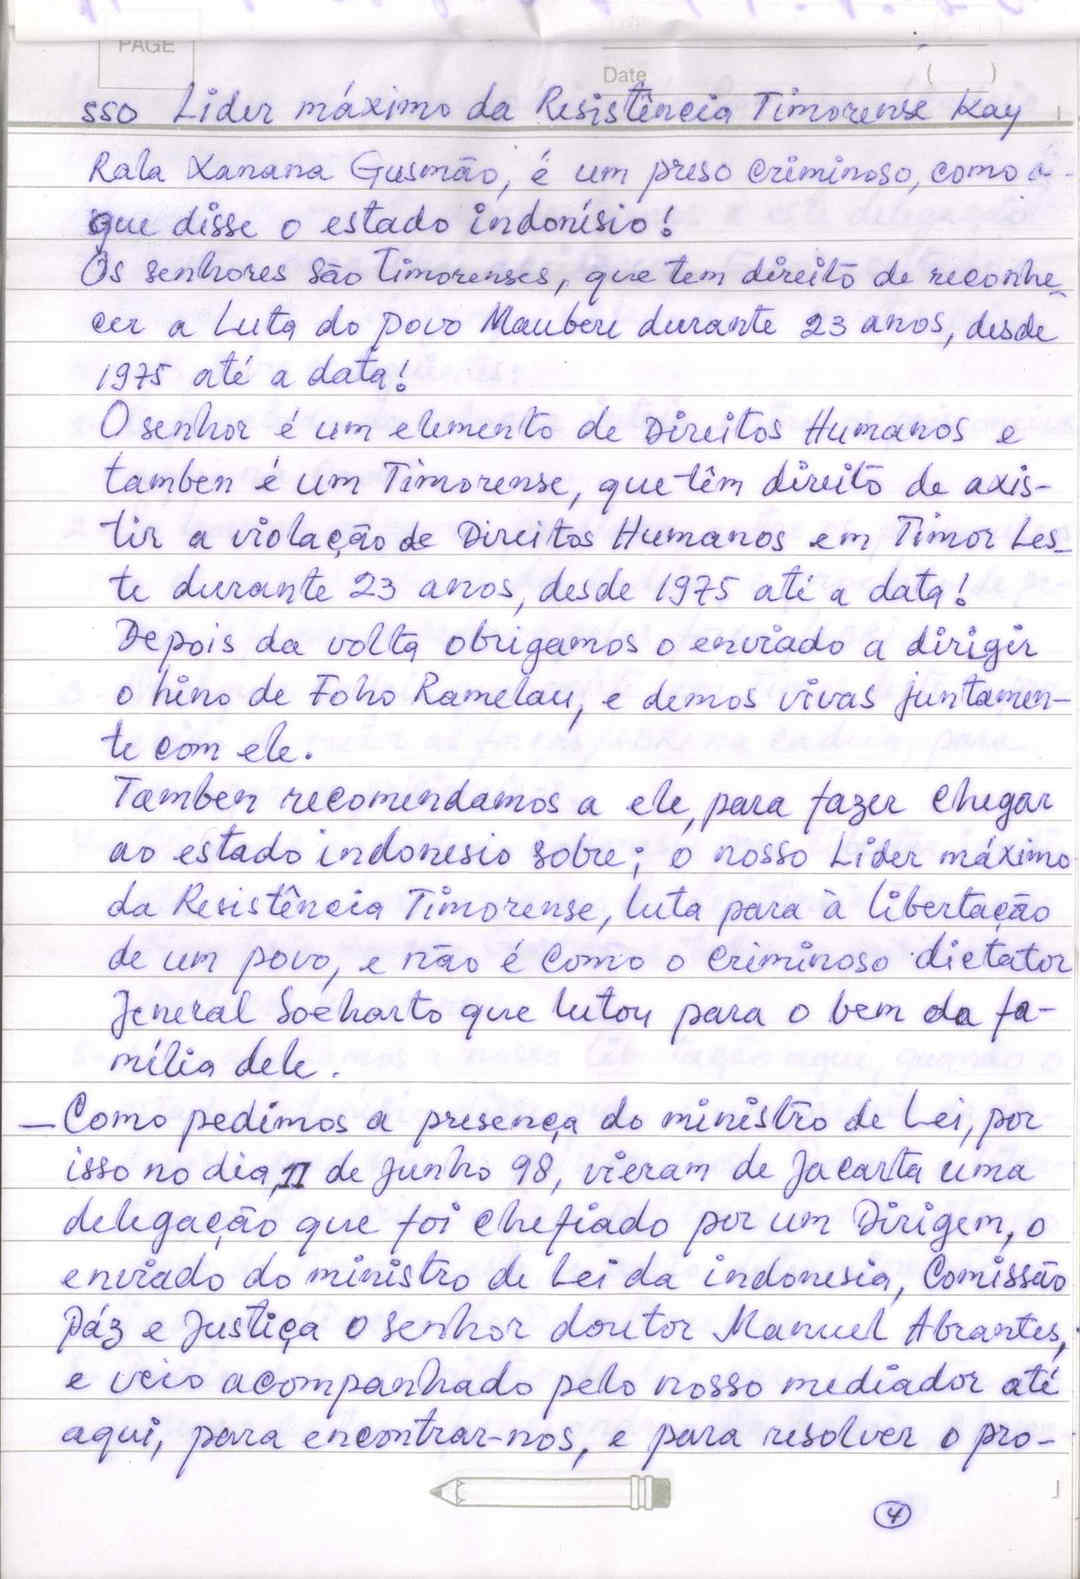 PAGE
Date ( )
sso Lider máximo da Resistência Timorense Kay
Rala Xanana Gusmão, é um preso criminoso, como o
que disse o estado indonísio!
Os senhores são Timorenses, que tem direito de reconhe-
cer a Luta do povo Maubere durante 23 anos, desde
1975 até a data!
O senhor é um elemento de Direitos Humanos e
tamben é um Timorense, que têm direito de axis-
tir a violação de Direitos Humanos em Timor Les-
te durante 23 anos, desde 1975 até a data!
Depois da volta obrigamos o enviado a dirigir
o hino de Foho Ramelau, e demos vivas juntamen-
te com ele.
Tamben recomendamos a ele, para fazer chegar
ao estado indonesio sobre; o nosso Lider máximo
da Resistência Timorense, luta para à libertação
de um povo, e não é como o criminoso dictator
Jeneral Soeharto que lutou para o bem da fa-
mília dele.
— Como pedimos a presença do ministro de Lei, por
isso no dia, 11 de Junho 98, vieram de Jacarta uma
delegação que foi chefiado por um Dirigem, o
enviado do ministro de Lei da indonesia, Comissão
Páz e Justiça o senhor doutor Manuel Abrantes,
e veio acompanhado pelo nosso mediador até
aqui, para encontrar-nos, e para resolver o pro-
4